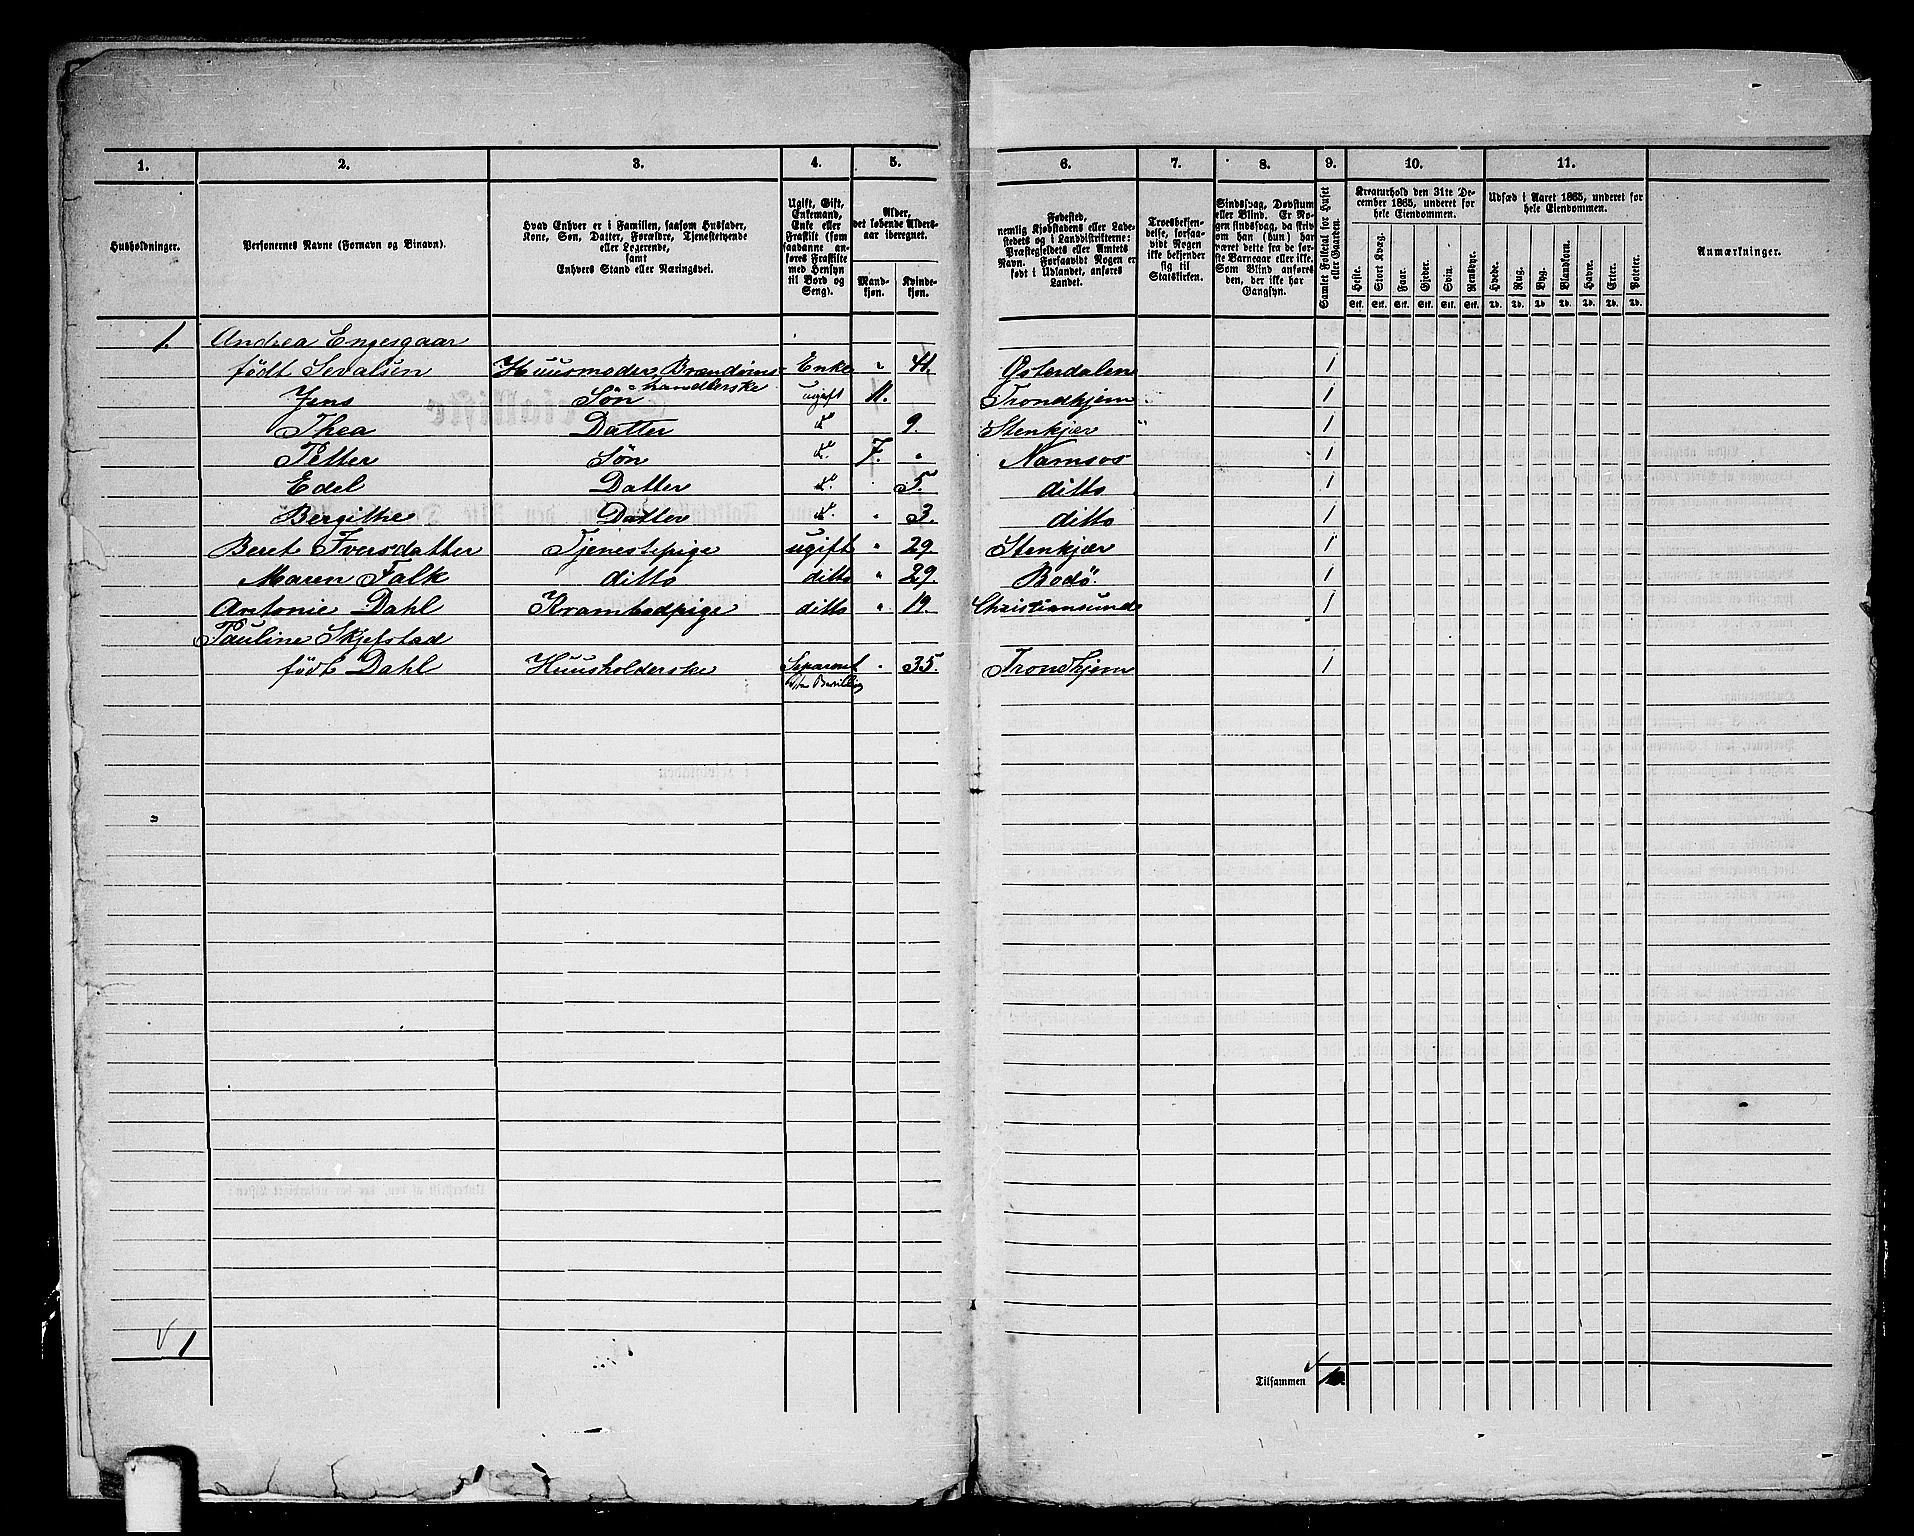 1. 2. 3. 4. 5. 6. 7. 8. 9. 10. 11.
Husholdninger.
Personernes Navne (Fornavn og Binavn).
Hvad Enhver er i Familien, saasom Husfader,
Kone, Søn, Datter, Forældre, Tjenestetyende
eller Logerende,
samt
Enhvers Stand eller Næringsvei.
Ugift, Gift,
Enkemand,
Enke eller
Fraskilt (som
saadanne an-
føres Fraskilte
med Hensyn
til Bord og
Seng).
Alder,
det løbende Alders-
aar iberegnet.
Mand-
kjøn.
Kvinde-
kjøn.
Fødested,
nemlig Kjøbstadens eller Lade-
stedets og i Landdistrikterne:
Præstegjeldets eller Amtets
Navn. Forsaavidt Nogen er
født i Udlandet, anføres
Landet.
Troesbekjen-
delse, forsaa-
vidt Nogen
ikke bekjender
sig til
Statskirken.
Sindssvag, Døvstum
eller Blind. Er No-
gen sindssvag, da skriv
om han (hun) har
været dette fra de før-
ste Barneaar eller ikke.
Som Blind anføres
den, der ikke har
Gangsyn.
Samlet Folketal for Huset
eller Gaarden.
Kreaturhold den 31te De-
cember 1865, underet for
hele Eiendommen.
Heste. Stort Kvæg. Faar. Gjeder. Svin. Rensdyr.
Stk. Stk. Stk. Stk. Stk. Stk.
Udsæd i Aaret 1865, underet for
hele Eiendommen.
Hvede. Rug. Byg. Blandkorn. Havre. Erter. Poteter.
Td. Td. Td. Td. Td. Td. Td.
Anmærkninger.
1. Andrea Engesgaar
født Sevalsen Huusmoder, Brændeviins- Enke " 41. Østerdalen 1
handlerske
Jens Søn ugift 11. Trondhjem 1
Thea Datter do 9. Stenkjær " 1
Petter Søn do 7. " Namsos 1
Edel Datter do 5. ditto 1
Bergithe Datter do " 3. ditto 1
Beret Iversdatter Tjenestepige ugift " 29. Stenkjær 1
Maren Falk ditto ditto " 29. Bodö. 1
Antonie Dahl Krambodpige ditto " 19. Christiansund 1
Pauline Skjefstad
født Dahl Huusholderske Separeret " 35. Trondhjem 1
1
Tilsammen 10.